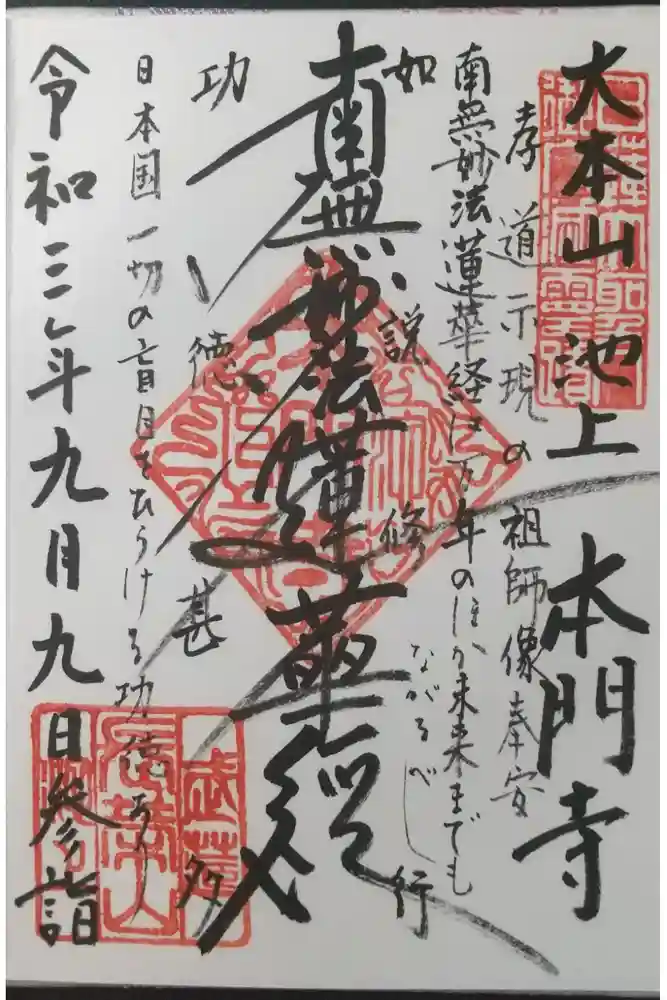 大本山 池上 本門寺
孝道示現の祖師像奉安
南無妙法蓮華経は万年のほか未来までも
ながるべし
如説修行
南無妙法蓮華経
功徳甚多
日本国一切の盲目をひらける功徳あり
令和三年九月九日参詣